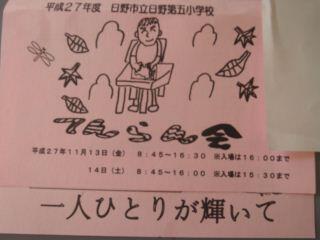 平成27年度　日野市立日野第五小学校
てんらん会
平成27年11月13日(金)　8:45~16:30　※入場は16:00まで
14日(土)　8:45~16:00　※入場は15:30まで
一人ひとりが輝いて